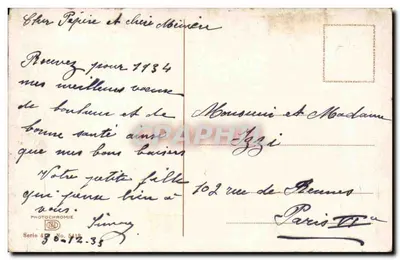 Cher Pépère et chère Mémère
Recevez pour 1934
mes meilleurs voeux
de bonheur et de
bonne santé ainsi
que mes bons baisers
Votre petite fille
qui pense bien à
vous.
30-12-33
PHOTOCHROMIE
Serie No.
Monsieur et Madame
Izzi
102 rue de Rennes
Paris VIe